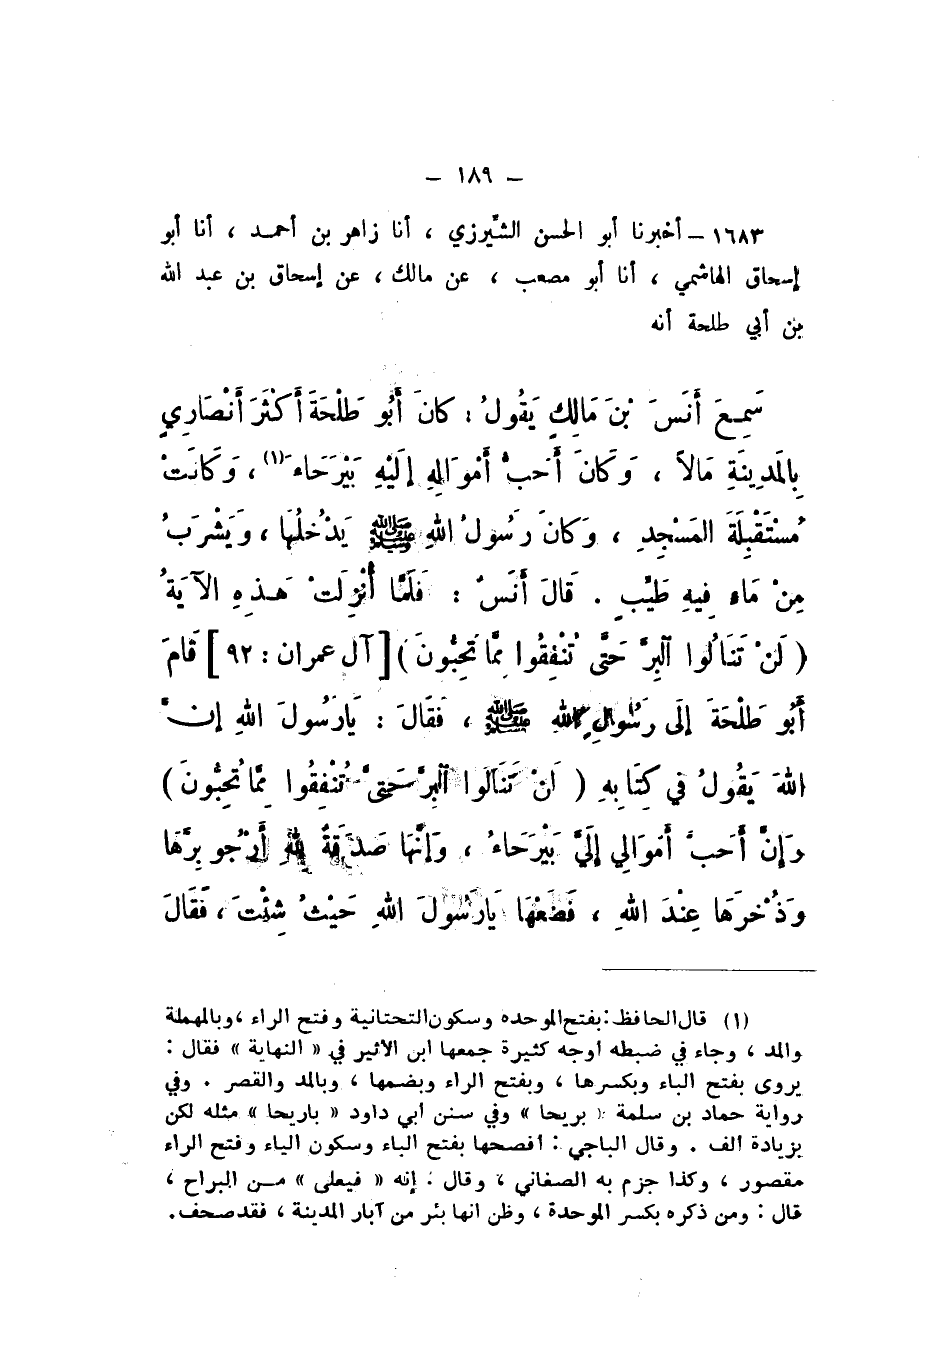 – ١٨٩ –
١٦٨٣ – أخبرنا أبو الحسن الشِّيرزي ، أنا زاهر بن أحمد ، أنا أبو
إسحاق الهاشمي ، أنا أبو مصعب ، عن مالك ، عن إسحاق بن عبد الله
بن أبي طلحة أنه
سَمِعَ أَنَسَ بْنَ مَالِكٍ يَقُولُ : كَانَ أَبُو طَلْحَةَ أَكْثَرَ أَنْصَارِيٍ
بِالمَدِينَةِ مَالاً ، وَكَانَ أَحَبُّ أَمْوَالِهِ إِلَيْهِ بَيْرَحَاءَ (١) ، وَكَانَتْ
مُسْتَقْبِلَةَ المَسْجِدِ ، وَكَانَ رَسُولُ اللهِ ﷺ يَدْخُلُهَا ، وَيَشْرَبُ
مِنْ مَاءٍ فِيهِ طَيِّبٍ . قَالَ أَنَسٌ : فَلَمَّا أُنْزِلَتْ هَذِهِ الآيَةُ
( لَنْ تَنَالُوا ٱلبِرَّ حَتَّى تُنْفِقُوا مِمَّا تُحِبُّونَ ) [ آل عمران : ٩٢ ] قَامَ
أَبُو طَلْحَةَ إِلَى رَسُولِ اللهِ ﷺ ، فَقَالَ : يَارَسُولَ اللهِ إِنَّ
اللهَ يَقُولُ فِي كِتَابِهِ ( لَنْ تَنَالُوا ٱلبِرَّ حَتَّى تُنْفِقُوا مِمَّا تُحِبُّونَ )
وَإِنَّ أَحَبَّ أَمَوَالِي إِلَيَّ بَيْرَحَاءُ ، وَإِنَّهَا صَدَقَةٌ لِلهِ أَرْجُو بِرَّهَا
وَذُخْرَهَا عِنْدَ اللهِ ، فَضَعْهَا يَارَسُولَ اللهِ حَيْثُ شِئْتَ ، فَقَالَ
(١) قال الحافظ : بفتح الموحده وسكون التحتانية وفتح الراء ، وبالمهملة
والمد ، وجاء في ضبطه أوجه كثيرة جمعها ابن الأثير في « النهاية » فقال :
يروى بفتح الباء وبكسرها ، وبفتح الراء وبضمها ، وبالمد والقصر . وفي
رواية حماد بن سلمة « بريحا » وفي سنن أبي داود « باريحا » مثله لكن
بزيادة ألف . وقال الباجي : أفصحها بفتح الباء وسكون الياء وفتح الراء
مقصور ، وكذا جزم به الصغاني ، وقال : إنه « فيعلى » من البراح ،
قال : ومن ذكره بكسر الموحدة ، وظن أنها بئر من آبار المدينة ، فقد صحف.